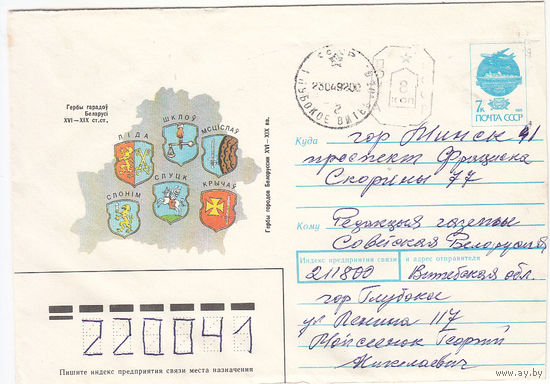 Гербы гарадоў
Беларусі
XVI—XIX ст.ст.
ЛІДА
ШКЛОЎ
МСЦІСЛАЎ
СЛОНІМ
СЛУЦК
КРЫЧАЎ
Гербы городов Белоруссии XVI—XIX вв.
СССР
230492 20
ГЛУБОКОЕ ВИТЕБ
8
КОП
7к
ПОЧТА СССР
Куда
гор Минск 41
проспект Франциска
Скорины 77
Кому
Редакция газеты
Советская Белоруссия
Индекс предприятия связи и адрес отправителя
211800
Витебская обл.
гор Глубокое
ул Ленина 117
Мойсеёнок Георгий
Николаевич
220041
Пишите индекс предприятия связи места назначения
www.ay.by